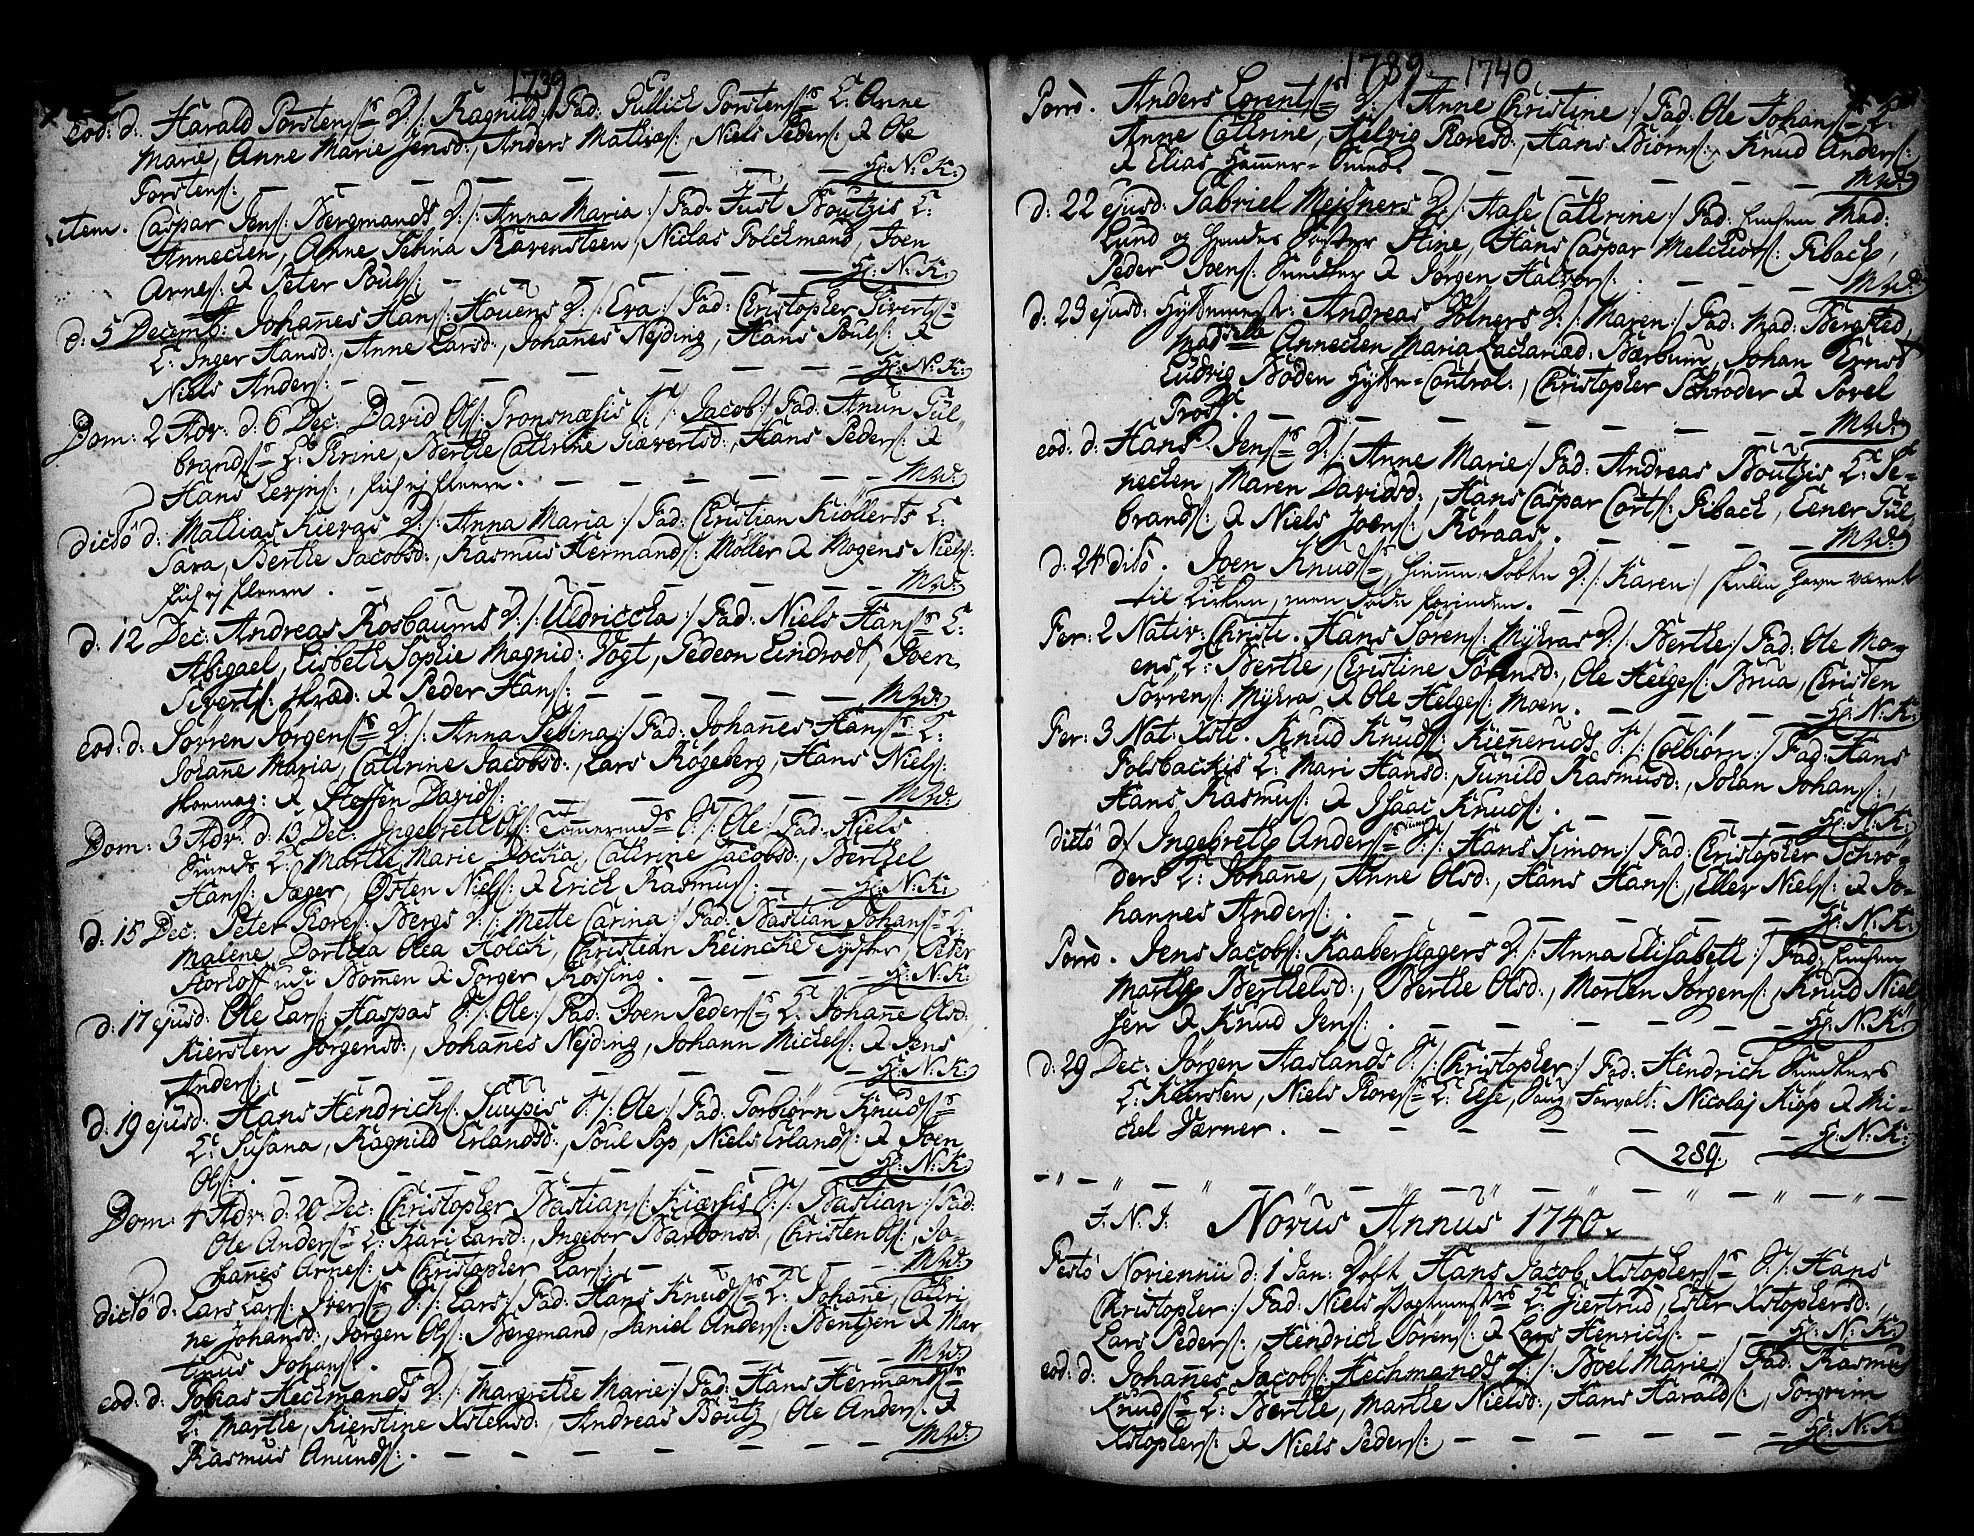 1739
eod: d: Harald Torstenss D:/: Ragnild:/ Fad: Gullich Torstenss L: Anne
Marie, Anne Marie Jensd:, Anders Mathiæs:, Niels Peders: & Ole
Torstens: H: N: K:
item. Caspar Jens: Bergmands D:/: Anna Maria:/ Fad: Just Boutzis L:
Annechen, Anne Sebina Ravensteen, Niclas Folckmand, Joen
Arnes: & Peter Pouls: H: N: K:
d: 5 Decemb: Johanes Hans: Houens D:/: Eva:/ Fad: Christopher Siverts
L: Inger Hansd:, Anne Larsd:, Johanes Nejding, Hans Pouls: &
Niels Anders: H: N: K:
Dom: 2 Adv: d: 6 Dec: David Ols: Tronsnæsis S:/: Jacob:/ Fad: Anun Gul-
brands L: Kirine, Berthe Cathrine Giævertsd:, Hans Peders: &
Hans , M W:
dicto d: Mathias Kieras D:/: Anna Maria:/ Fad: Christian Kiøllerts L:
Sara, Berthe Jacobsd:, Rasmus Hermands: Møller & Mogens Niels:
M W:
d: 12 Dec: Andreas Rosbaums D:/: Uldriccha:/ Fad: Niels Hans L:
Abigael, Lisbeth Sophie Magnid: Vogt, Gedeon Lindrodt, Joen
Siverts: skræd: & Peder Hans: M W:
eod: d: Sørren Jørgenss D:/: Anna Sebina:/ Fad: Johanes Hans L:
Johane Maria, Cathrine Jacobsd:, Lars Røgeberg, Hans Niels:
skomag: & Steffen Davids: M W:
Dom: 3 Adv: d: 13 Dec: Ingebreth Ols: S:/: Ole:/ Fad: Niels
L: Marthe Marie Docka, Cathrine Jacobsd:, Berthel
Hans: Jæger, Østen Niels: & Erich Rasmus: H: N: K:
d: 15 Dec: Peter Rores: Bergs D:/: Mette Carina:/ Fad: Bastian Johans L:
Malene, Dorthea Olea Holch, Christian Reincke , Peter
Bommen & Torger Rossing. H: N: K:
d: 17 ejusd: Ole Lars: Haspas S:/: Ole:/ Fad: Joen Peders L: Johane Olsd,
Kiersten Jørgensd:, Johanes Nejding, Johann Michels: & Jens
Anders: H: N: K:
d: 19 ejusd: Hans Hendrichs: Suupis S:/: Ole:/ Fad: Torbiørn Knuds
L: Susana, Ragnild Erlandsd:, Poul Pop, Niels Erlands: & Joen
Ols: H: N: K
Dom: 4 Adv: d: 20 Dec: Christopher Bastians: Kiærsis S:/: Bastian:/ Fad:
Ole Anders L: Kari Larsd:, Ingebor Bardonsd:, Christen Ols:, Jo-
hanes Arnes: & Christopher Lars: M W:
dicto d: Lars Lars: Ivers S:/: Lars:/ Fad: Hans Knuds L: Johane, Cathri
ne Johansd:, Jørgen Ols: Bergmand, Daniel Anders: Bentzen & Mar
tinus Johans: M W:
eod: d: Tobias Hechmands D:/: Margrethe Marie:/ Fad: Hans Hermands
L: Marthe, Kierstine Xstensd:, Andreas Boutz, Ole Anders: &
Rasmus Anunds: M W:
1739 - 1740
Porrò. Anders Lorents D:/: Anne Christine:/ Fad: Ole Johans L:
Anne Cathrine, Helvig Roresd:, Hans Biørns:, Knud Anders:
& Elias Hammer-Smed. M W:
d: 22 ejusd: Gabriel Mejsners D:/: Aase Cathrine:/ Fad: Mad:
Lund og Hendes Søster Stine, Hans Caspar Melchiors: Fibach,
Peder Joens: & Jørgen Halvors: M W:
d: 23 ejusd: Andreas Gølners D:/: Maren:/ Fad: Mad: Bergsted,
Mad:selle Annechen Maria Zachariæd: Bærbum, Johan Ernst
Ludvig Boden Hytte-Control:, Christopher Schrøder & Povel
M W:
eod: d: Hans Jens D:/: Anne Marie:/ Fad: Andreas Boutzis L: Se-
nechen, Maren Davidsd:, Hans Caspar Corts: Fibach, Eener Gul
brands: & Niels Joens: Røraas. M W:
d: 24 dito. Joen Knuds, D:/: Karen:/ skulle Have været
til Kirken, men døde forinden.
Fer: 2 Nativ: Christi. Hans Sørens: Myhras D:/: Berthe:/ Fad: Ole Mo-
ens L: Berthe, Christine Sørensd:, Ole Helges: Brua, Christen
Sørrens: Myhra & Ole Helges: Moen. H: N: K:
Fer: 3 Nat: Xsti. Knud Knuds: Kieneruds S:/: Colbiørn:/ Fad: Hans
Folsbackis L: Mari Hansd:, Gunild Rasmusd:, Johan Johans:,
Hans Rasmus: & Isaac Knuds: H: N: K:
dicto d: Ingebreth Anders S:/: Hans Simon:/ Fad: Christopher Schrø-
ders L: Johane, Anne Olsd:, Hans Hans:, Eller Niels: & Jo-
hannes Anders: H: N: K:
Porrò. Jens Jacobs: Kaaberslagers D:/: Anna Elisabeth:/ Fad:
Marthe Berthelsd:, Berthe Olsd:, Morten Jørgens:, Knud Niel
sen & Knud Jens: H: N: K:
d: 29 Dec: Jørgen Aaslands S:/: Christopher:/ Fad: Hendrich
L: Kiersten, Niels Rores L: Else, Forvalt: Nicolaj Kiøp & Mi-
chel Værner. H: N: K:
289.
I. N. J. Novus Annus 1740.
Festo Noviennii d: 1 Jan: Døbt Hans Jacob Xstophers S:/: Hans
Christopher:/ Fad: Niels L: Giertrud, Ester Xstophersd:,
Lars Peders:, Hendrich Sørens: & Lars Henrichs: H: N: K:
eod: d: Johanes Jacobs: Hechmands D:/: Boel Marie:/ Fad: Rasmus
Knuds L: Berthe, Marthe Nielsd:, Hans Haralds:, Torgrim
Xstophers: & Niels Peders: H: N: K: